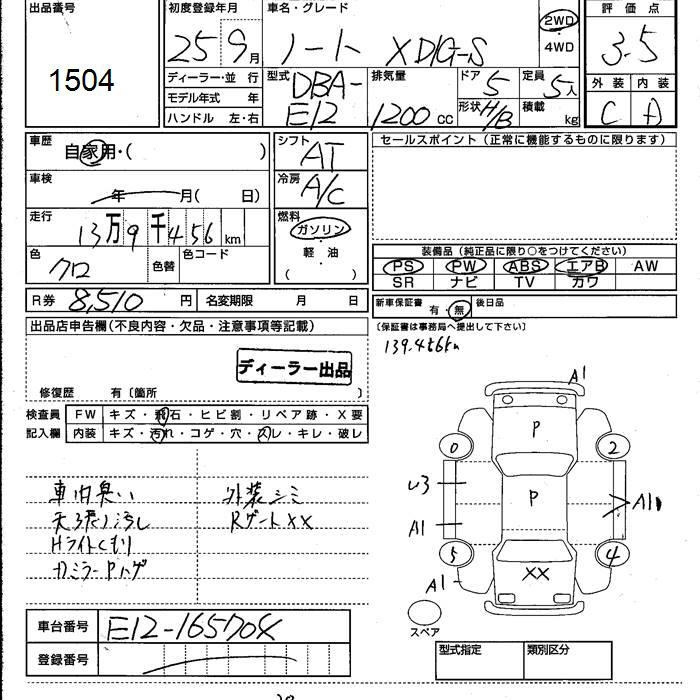 出品番号
1504
初度登録年月
25 9月
車名・グレード
ノート X DIG-S
2WD
・
4WD
評価点
3.5
ディーラー・並 行
モデル年式 年
ハンドル 左・右
型式
DBA-
E12
排気量
1200 cc
ドア 5
形状 H/B
定員 5人
積載 kg
外装 内装
C A
車歴
自家用・( )
車検
年 月( 日)
走行
13万9千456 km
色
クロ
色替
色コード
シフト
AT
冷房
A/C
燃料
ガソリン
・
軽 油
( )
セールスポイント (正常に機能するものに限ります)
装備品(純正品に限り○をつけてください)
PS PW ABS エアB AW
SR ナビ TV カワ
R券 8,510 円 名変期限 月 日
新車保証書 有・無 後日品
(保証書は事務局へ提出して下さい)
139.456km
出品店申告欄(不良内容・欠品・注意事項等記載)
ディーラー出品
修復歴 有〔箇所 〕
検査員
記入欄
FW キズ・飛石・ヒビ割・リペア跡・X要
内装 キズ・汚れ・コゲ・穴・スレ・キレ・破レ
車内臭い
天張り汚れ
Hライトくもり
カミラーPハゲ
外装シミ
RゲートXX
A1
P
0
2
U3
P
A1
A1
5
4
XX
A1
スペア
車台番号 E12-165704
登録番号
型式指定 類別区分